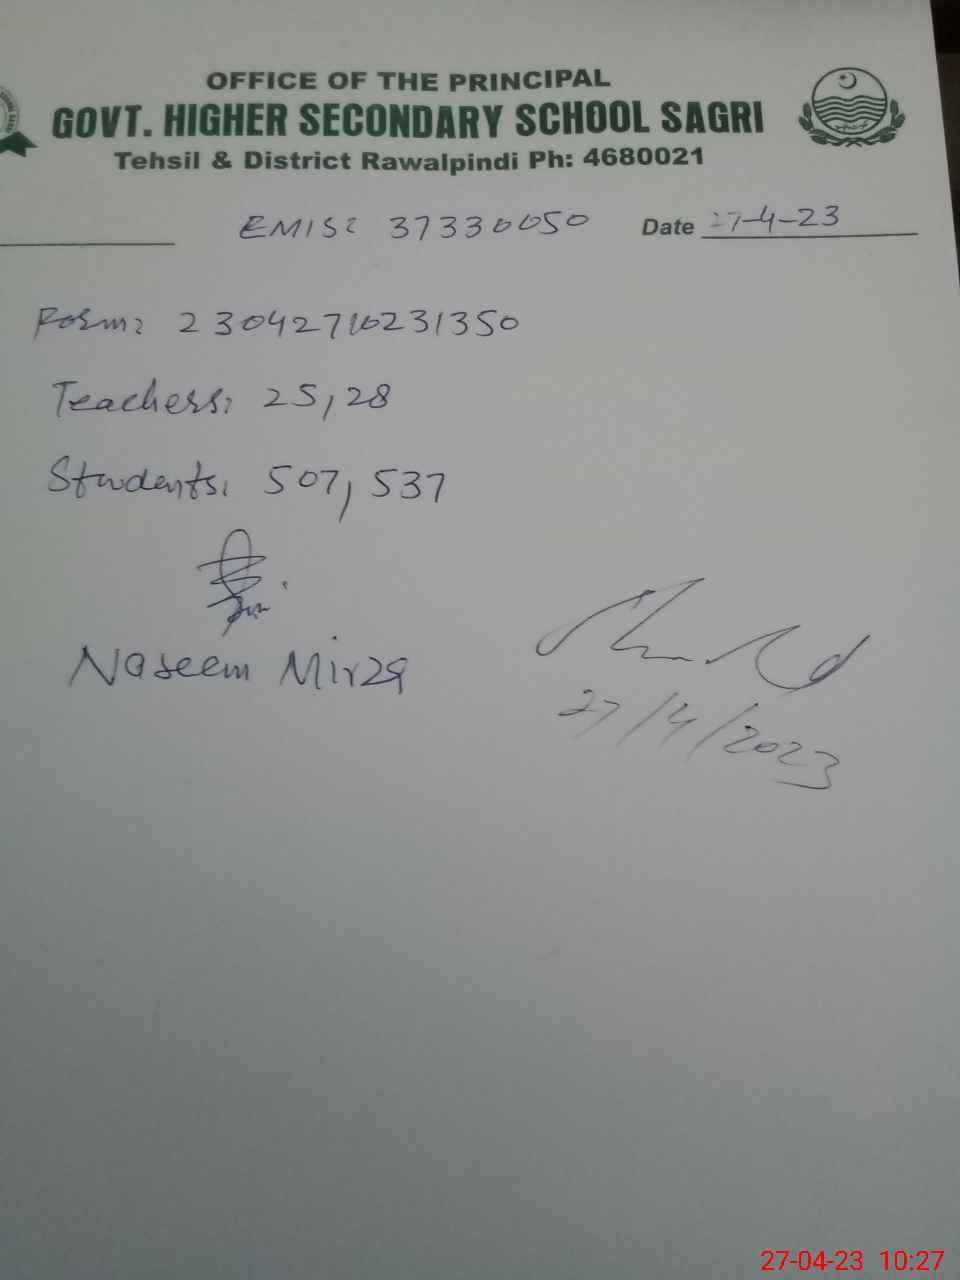 OFFICE OF THE PRINCIPAL
GOVT. HIGHER SECONDARY SCHOOL SAGRI
Tehsil & District Rawalpindi Ph: 4680021
EMIS: 37330050 Date 27-4-23
Form: 23042710231350
Teachers: 25,28
Students: 507, 537
Naseem Mirza
27/4/2023
27-04-23 10:27